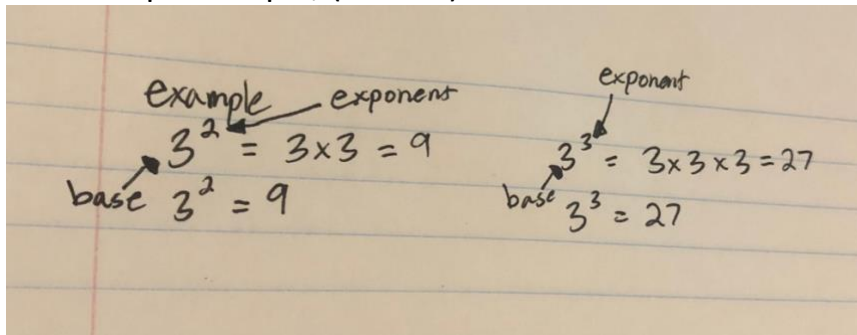 example
exponent
3² = 3×3 = 9
base
3² = 9
exponent
3³ = 3×3×3=27
base
3³ = 27